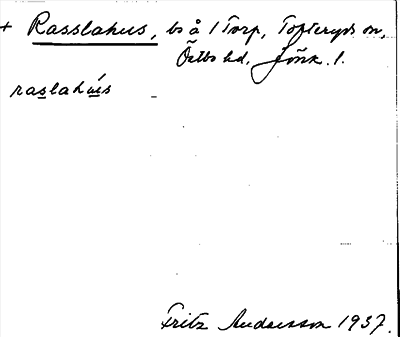 + Rasslahus, bs å 1 Torp, Tofteryds sn,
Östbo hd, Jönk. l.
raslahús –
Fritz Andersson 1937.